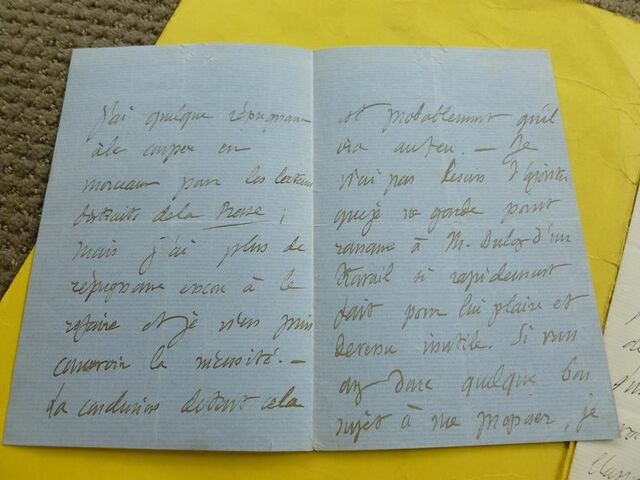 J'ai quelque répugnance
à le couper en
morceaux pour les lecteurs
distraits de la Presse ;
mais j'ai plus de
répugnance encore à le
refaire et je n'en puis
concevoir la nécessité. —
La conclusion de tout cela
est probablement qu'il
ira au feu. — Je
n'ai pas besoin d'ajouter
que je ne garde point
rancune à M. d'un
travail si rapidement
fait pour lui plaire et
devenu inutile. Si vous
avez donc quelque bon
sujet à me proposer, je